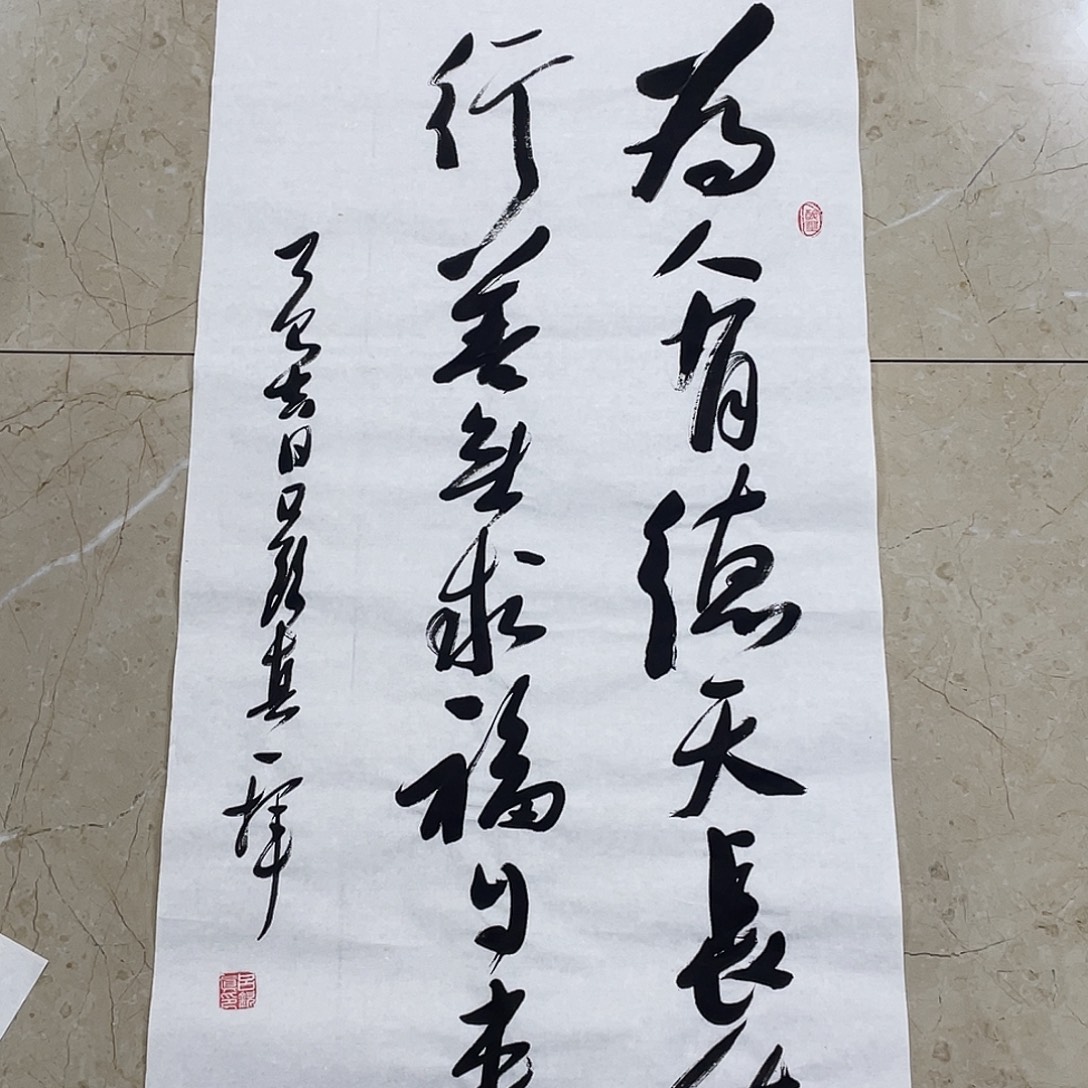 為人有德天長
行善無求福自來
吉日呂
真一揮